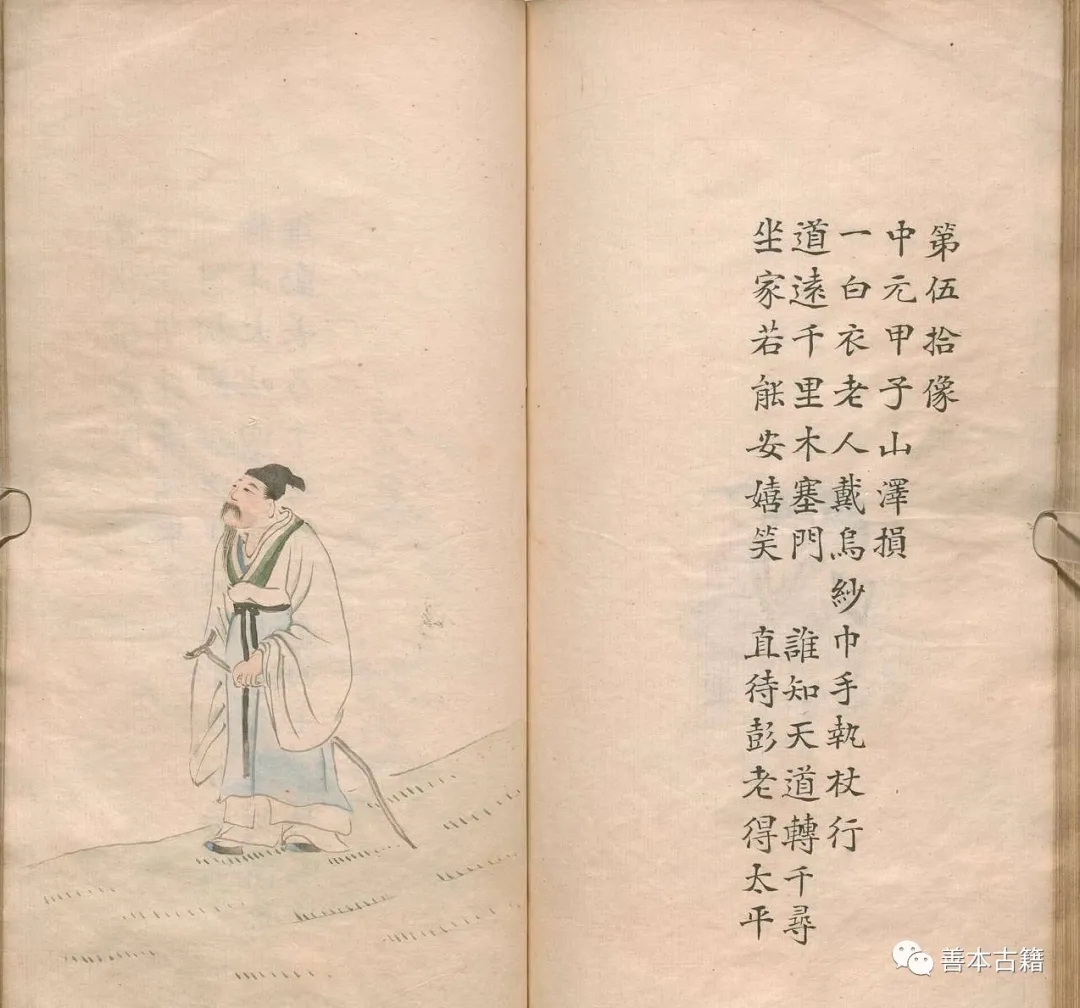 第伍拾像
中元甲子山澤損
一白衣老人戴烏紗巾手執杖行
道遠千里木塞門　誰知天道轉千尋
坐家若能安嬉笑　直待彭老得太平
善本古籍